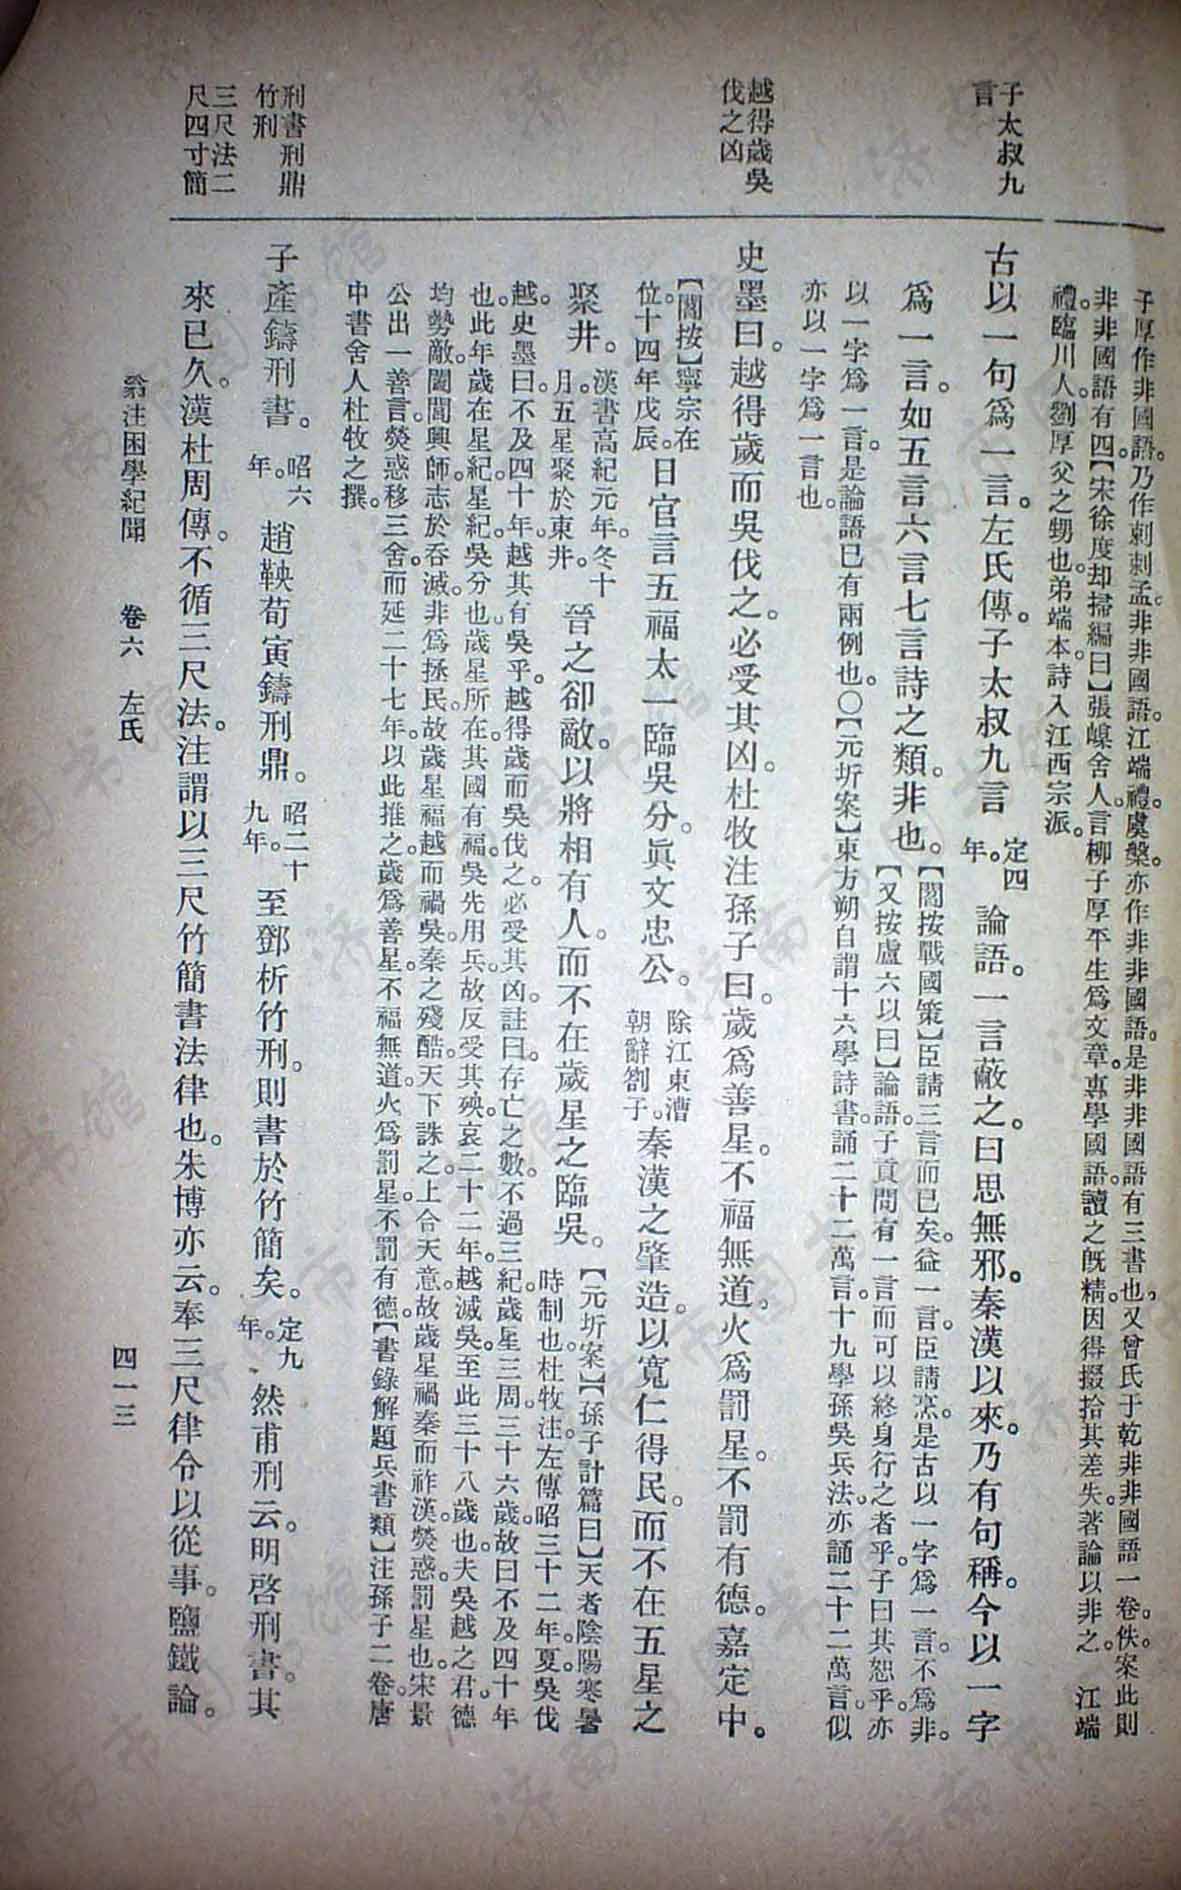 子厚作非國語。乃作刺刺孟。非非國語。江端禮。虞槃。亦作非非國語。是非非國語有三書也。又曾氏于乾非非國語一卷。佚。案此則
非非國語有四。【宋徐度却掃編曰】張嵲舍人。言柳子厚平生爲文章。專學國語。讀之旣精。因得掇拾其差失。著論以非之。江端
禮。臨川人。劉厚父之甥也。弟端本。詩入江西宗派。
子太叔九
言
古以一句爲一言。左氏傳。子太叔九言定四
年。論語。一言蔽之。曰思無邪。秦漢以來。乃有句稱。今以一字
爲一言。如五言六言七言詩之類。非也。【閻按戰國策】臣請三言而已矣。益一言。臣請烹。是古以一字爲一言。不爲非。
【又按盧六以曰】論語。子貢問有一言而可以終身行之者乎。子曰其恕乎。亦
以一字爲一言。是論語已有兩例也。〇【元圻案】東方朔自謂十六學詩書。誦二十二萬言。十九學孫吳兵法。亦誦二十二萬言。似
亦以一字爲一言也。
越得歲吳
伐之凶
史墨曰。越得歲而吳伐之。必受其凶。杜牧注孫子曰。歲爲善星。不福無道。火爲罰星。不罰有德。嘉定中。
【閻按】寧宗在
位。十四年戊辰。日官言五福太一臨吳分。眞文忠公。除江東漕
朝辭劄子。秦漢之肇造。以寬仁得民。而不在五星之
聚井。漢書高紀元年。冬十
月。五星聚於東井。晉之卻敵。以將相有人。而不在歲星之臨吳。【元圻案】【孫子計篇曰】天者陰陽寒暑
時制也。杜牧注。左傳昭三十二年。夏。吳伐
越。史墨曰。不及四十年。越其有吳乎。越得歲而吳伐之。必受其凶。註曰。存亡之數。不過三紀。歲星三周。三十六歲。故曰不及四十年
也。此年歲在星紀。星紀。吳分也。歲星所在。其國有福。吳先用兵。故反受其殃。哀二十二年。越滅吳。至此三十八歲也。夫吳越之君。德
均勢敵。闔閭興師。志於吞滅。非爲拯民。故歲星福越而禍吳。秦之殘酷。天下誅之。上合天意。故歲星禍秦而祚漢。熒惑。罰星也。宋景
公出一善言。熒惑移三舍。而延二十七年。以此推之。歲爲善星。不福無道。火爲罰星。不罰有德。【書錄解題兵書類】注孫子二卷。唐
中書舍人杜牧之撰。
刑書刑鼎
竹刑
三尺法二
尺四寸簡
子產鑄刑書。昭六
年。趙鞅荀寅鑄刑鼎。昭二十
九年。至鄧析竹刑。則書於竹簡矣。定九
年。然甫刑云。明啓刑書。其
來已久。漢杜周傳。不循三尺法。注謂以三尺竹簡書法律也。朱博亦云。奉三尺律令以從事。鹽鐵論。
翁注困學紀聞 卷六 左氏 四一三